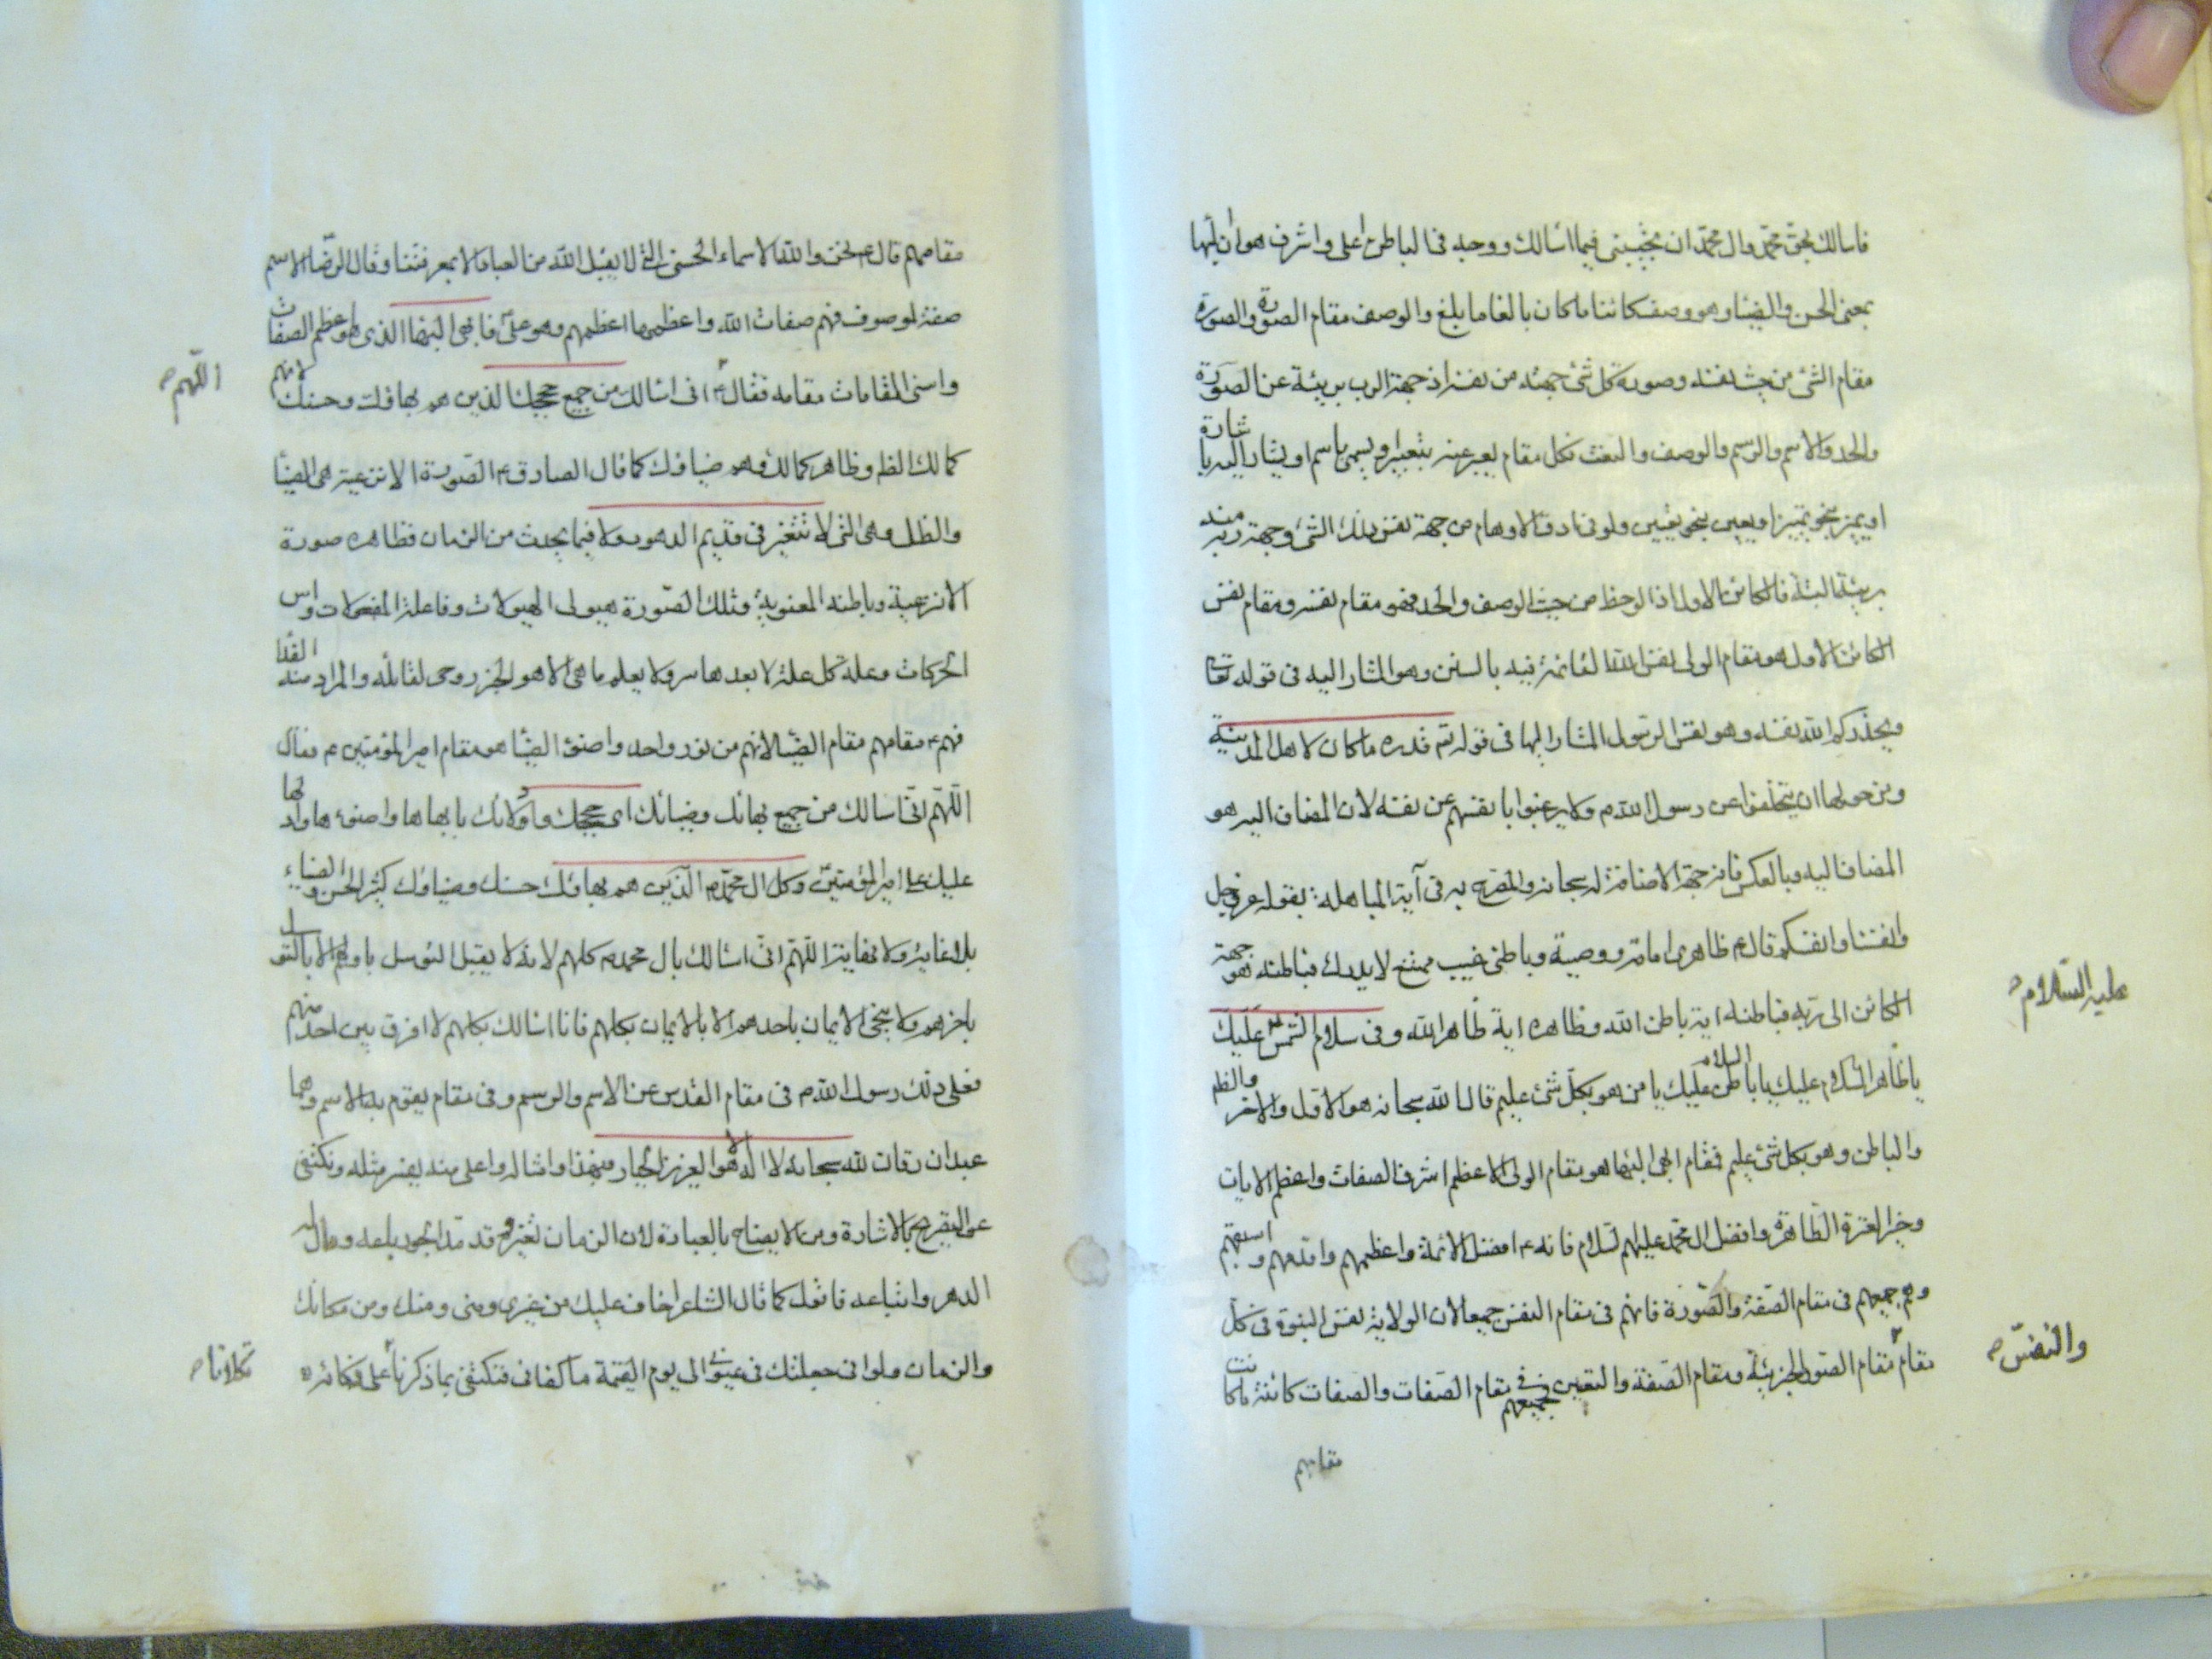 فاسالك بحق محمد وال محمد ان تجيبنى فيما اسالك ووجه فى الباطن اعلى واشرف هو ان البها
بمعنى الحسن والضياء وهو وصف كائنا ما كان بالغا ما بلغ والوصف مقام الصورة والصورة
مقام الشئ من حيث نفسه وصورة كل شئ جهته من نفسه اذ جهة الرب بريئة عن الصورة
والحد والاسم والرسم والوصف والنعت فكل مقام يعبر عنه بتعبير او يسمى باسم او يشار اليه باشارة
او يميز بنحو تميز او يعين بنحو تعيين ولو فى ادق الاوهام من جهة نفس ذلك الشئ وجهة ربه منه
بريئة البتة فالكائن الاول اذا لوحظ من حيث الوصف والحد فهو مقام نفسه ومقام نفس
الكائن الاول هو مقام الولى نفس الله القائمة فيه بالسنن وهو المشار اليه فى قوله تعالى
ويحذركم الله نفسه وهو نفس الرسول المشار اليها فى قوله تم قدره ما كان لاهل المدينة
ومن حولها ان يتخلفوا عن رسول الله ص ولا يرغبوا بانفسهم عن نفسه لان المضاف اليه هو
المضاف اليه وبالعكس فانه جهة الاضافة له سبحانه والمصرح به فى آية المباهلة بقوله عز وجل
وانفسنا وانفسكم قال ع ظاهرى امامة ووصية وباطنى غيب ممتنع لا يدرك فباطنه هو جهة
الكائن الى ربه فباطنه اية باطن الله وظاهره اية ظاهر الله وفى سلام الشمس عليك
عليه السلام
يا ظاهر السلام عليك يا باطن السلام عليك يا من هو بكل شئ عليم قال الله سبحانه هو الاول والاخر والظاهر
والباطن وهو بكل شئ عليم فمقام ابهى البهاء هو مقام الولى الاعظم اشرف الصفات واعظم الايات
وخير العترة الطاهرة وافضل ال محمد عليهم السلام فانه ع افضل الائمة واعظمهم واقدمهم واسبقهم
وهم جميعهم فى مقام الصفة والصورة فانهم فى مقام النفس جميعا لان الولاية نفس النبوة فى كل
مقام مقام الصور الجزئية ومقام الصفة والتعين وفى جميعهم مقام الصفات والصفات كائنة ما كانت
والنفس
مقامهم
مقامهم قال ع نحن والله الاسماء الحسنى التى لا يقبل الله من العباد الا بمعرفتنا وقال الرضا الاسم
صفة لموصوف فهم صفات الله واعظمها اعظمهم وهو على فابهى البهاء الذى هو اعظم الصفات
واسنى المقامات مقامه فقال ع انى اسالك من جميع حججك الذين هم بهاؤك وحسنك لانهم
اللهم
كمالك الظاهر وظاهر كمالك وهم ضياؤك كما قال الصادق ع الصورة الانزعية هى الضياء
والظل وهى التى لا تتغير فى قديم الدهور ولا فيما يحدث من الزمان فظاهره صورة
الانزعية وباطنه المعنوية وتلك الصورة هيولى الهيولات وفاعلة المفعولات واس
الحركات وعلة كل علة لا بعدها سر ولا يعلم ما هى الا هو الخبر روحى لقائله والمراد منه الفداء
فهم ع مقامهم مقام الضياء لانهم من نور واحد واضوء الضياء هو مقام امير المؤمنين ع فقال
اللهم انى اسالك من جميع بهائك وضيائك اى حججك واولائك بابهاها واضوئها وادلها
عليك على امير المؤمنين وكل ال محمد الذين هم بهاؤك حسنك وضياؤك كثير الحسن والضياء
بلا غاية ولا نهاية اللهم انى اسالك بال محمد ص كلهم لانه لا يقبل التوسل باولهم الا بالتوسل
باخرهم ولا ينجى الايمان باحدهم الا بالايمان بكلهم فانا اسالك بكلهم لا افرق بين احد منهم
فعلى ذلك رسول الله ص فى مقام القدس عن الاسم والرسم وفى مقام يقوم به الاسم وهما
عبدان رقان لله سبحانه لا اله الا هو العزيز الجبار فبهذا وامثاله واعلى منه يفسر مثله ونكتفى
عن التصريح بالاشارة ومن الايضاح بالعبارة لان الزمان تغير وقد مد الجور باعه ومال اليه
الدهر واتباعه فاقول كما قال الشاعر اخاف عليك من غيرى ومنى ومنك ومن مكانك
والزمان ولو انى جعلتك فى عيونى الى يوم القيمة ما كفانى فنكتفى بما ذكرنا على فكانه
تكلانا